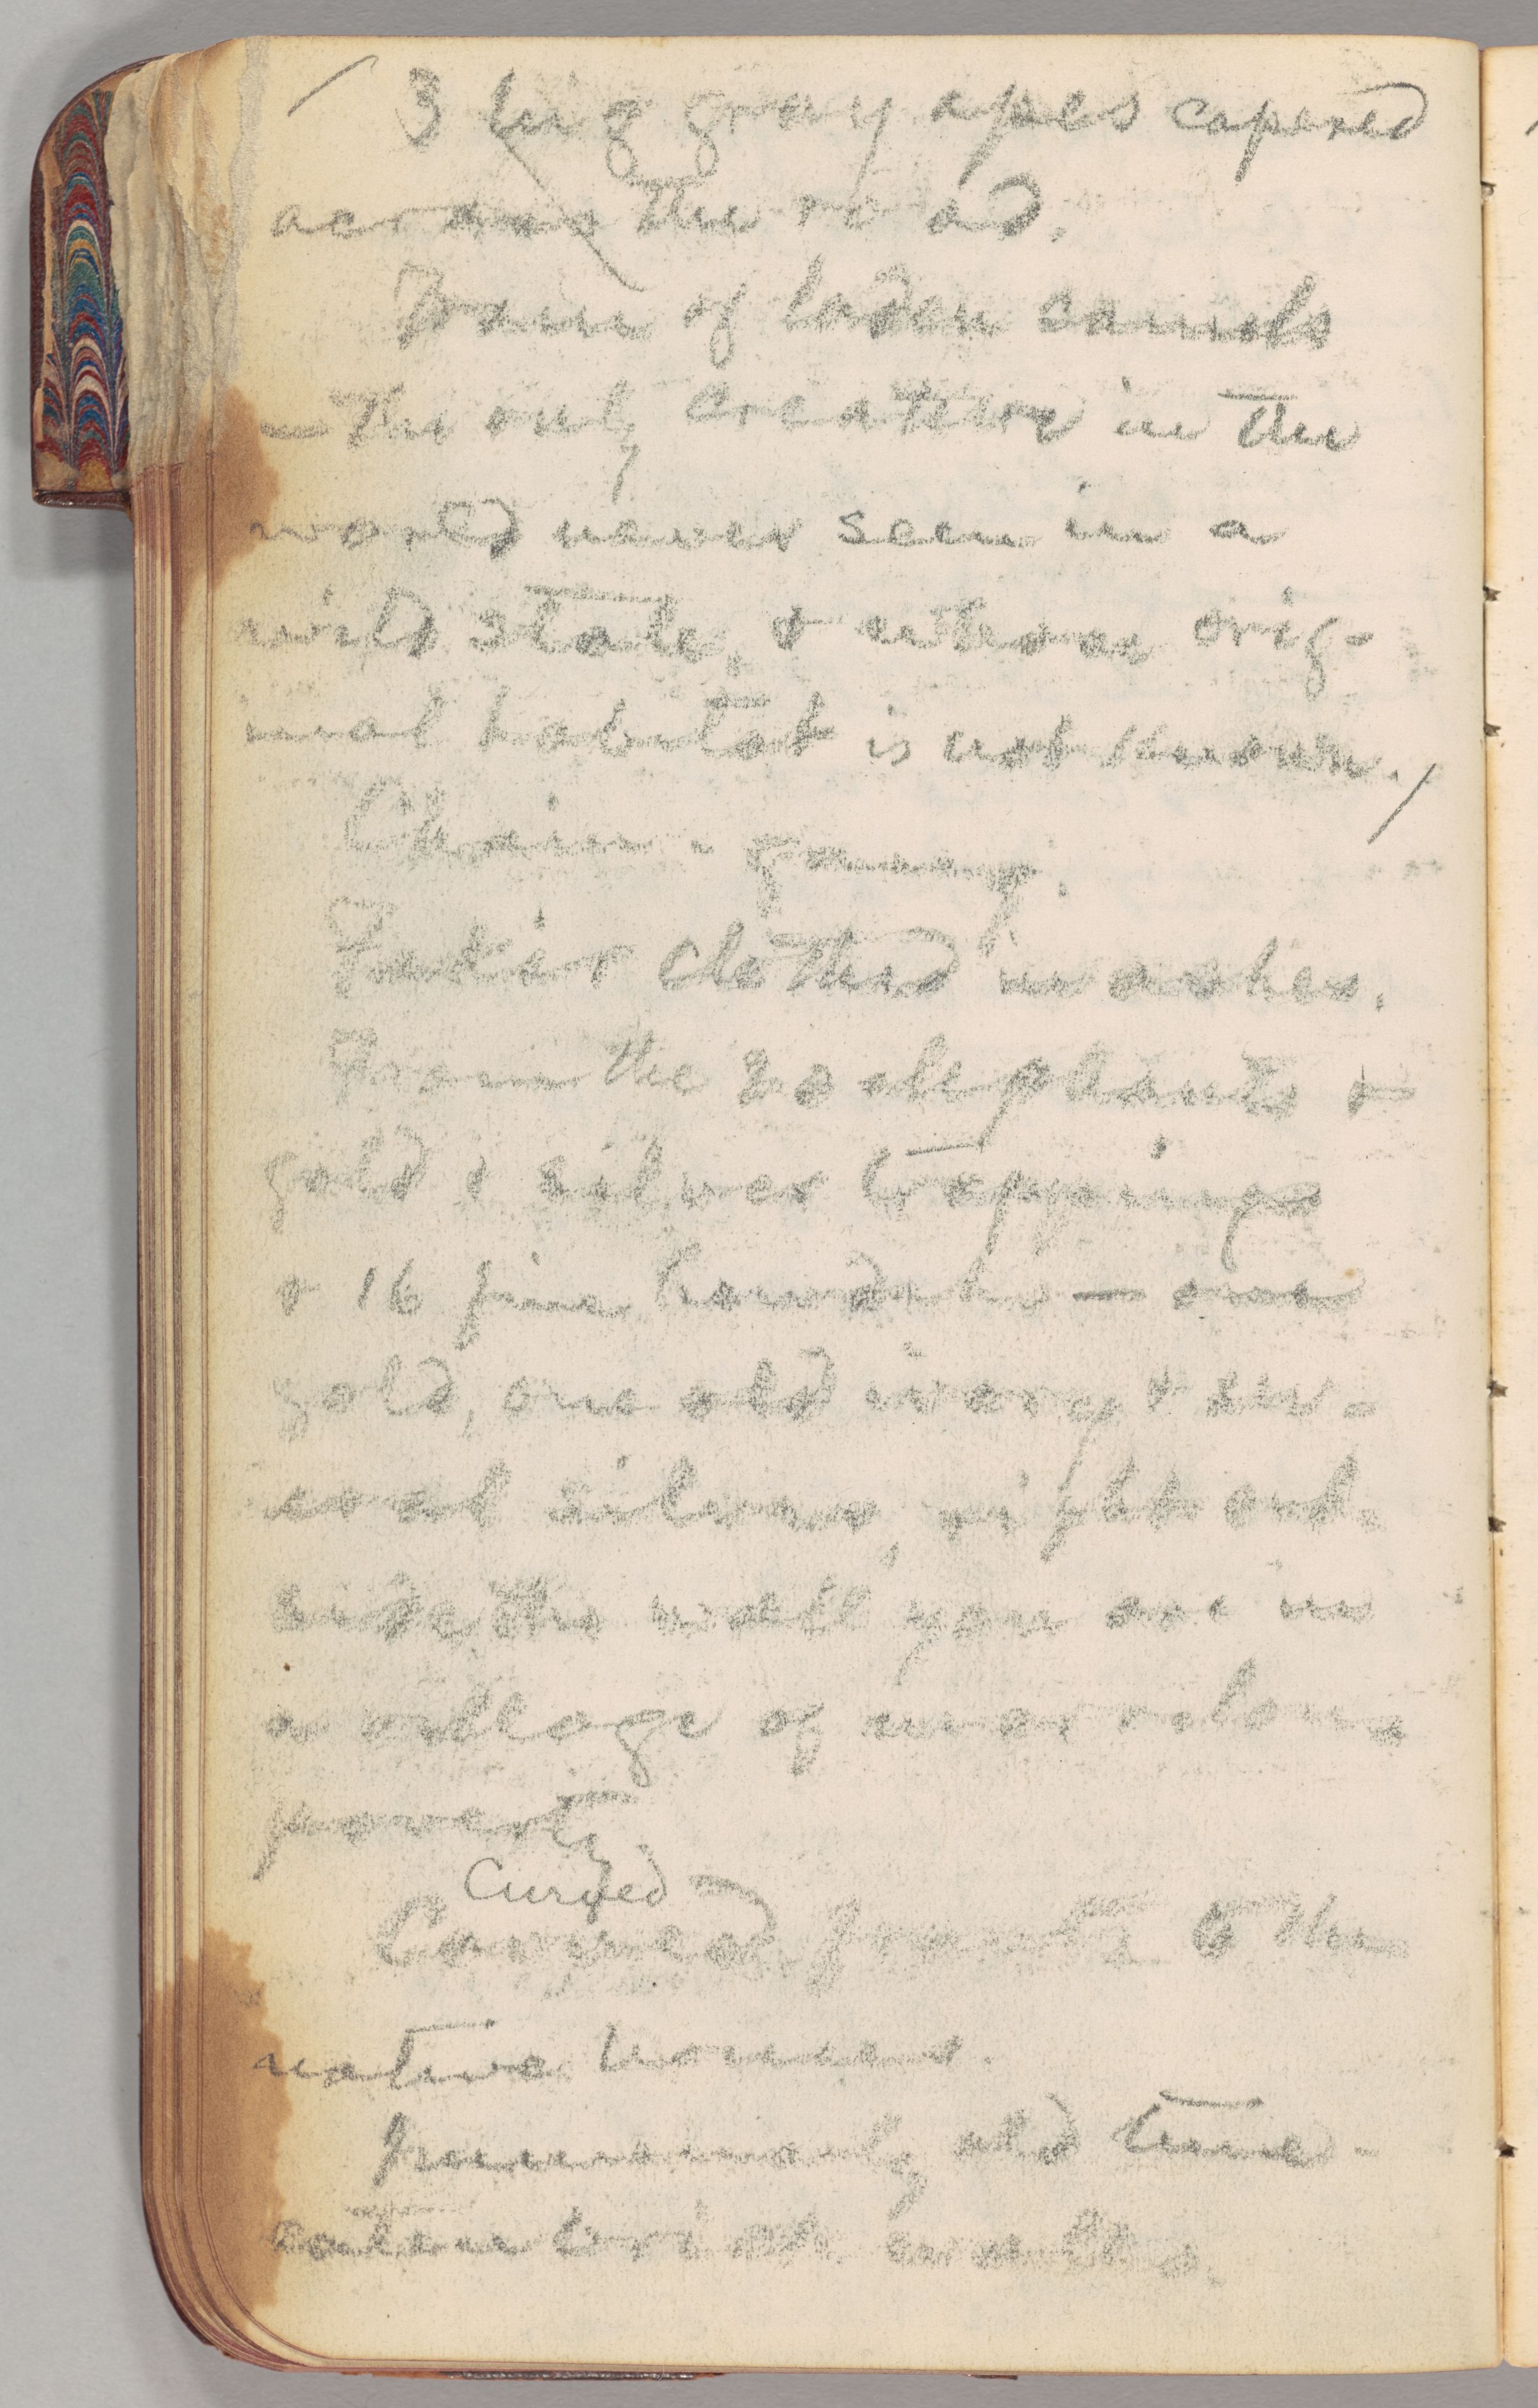 3 big gray apes capered
across the road.
Train of laden camels
— the only creature in the
world never seen in a
wild state, & whose orig-
inal habitat is not known.
Chain-gang.
Fakir clothed in ashes.
From the 20 elephants &
gold & silver trappings
& 16 fine howdahs — one
gold, one old ivory & sev-
eral silver, right out-
side the wall you are in
a village of marvelous
poverty.
Curved
Curved fronts to the
native houses.
Immensely old time-
eaten brick walls.